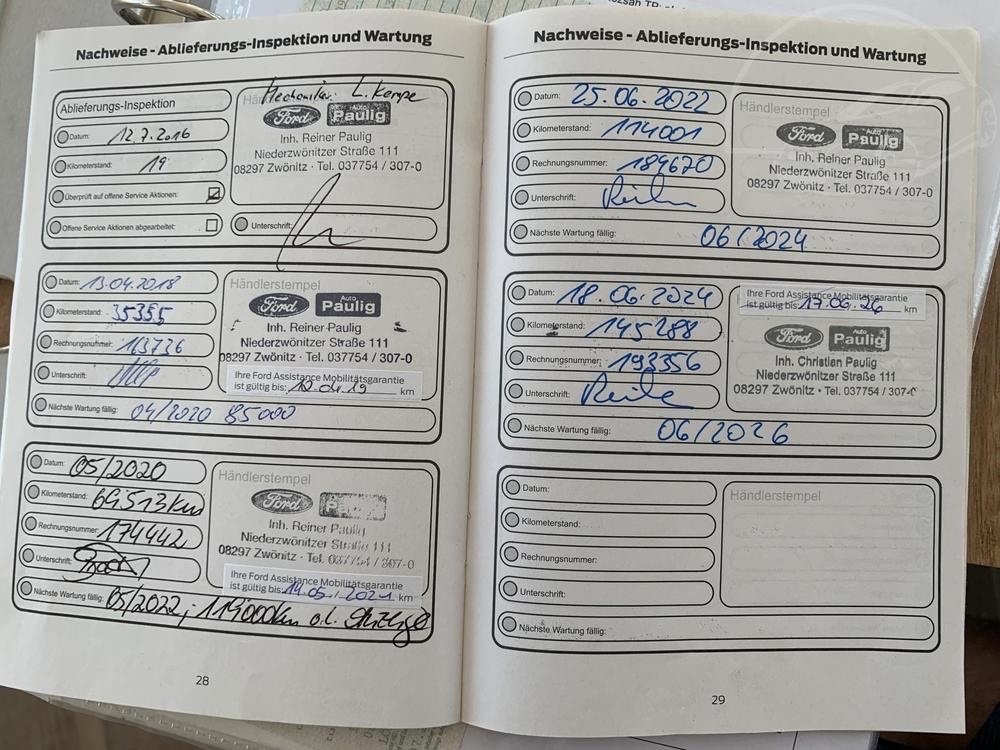 Nachweise - Ablieferungs-Inspektion und Wartung
Ablieferungs-Inspektion
Datum: 12.7.2016
Kilometerstand: 19
Überprüft auf offene Service Aktionen:
Offene Service Aktionen abgearbeitet:
Mechaniker: L. Kempe
Ford Auto Paulig
Inh. Reiner Paulig
Niederzwönitzer Straße 111
08297 Zwönitz · Tel. 037754 / 307-0
Unterschrift:
Datum: 13.04.2018
Kilometerstand: 35355
Rechnungsnummer: 163736
Unterschrift:
Nächste Wartung fällig: 04/2020 85000
Händlerstempel
Ford Auto Paulig
Inh. Reiner Paulig
Niederzwönitzer Straße 111
08297 Zwönitz · Tel. 037754 / 307-0
Ihre Ford Assistance Mobilitätsgarantie
ist gültig bis: 12.04.19 km
Datum: 05/2020
Kilometerstand: 69513km
Rechnungsnummer: 174442
Unterschrift:
Nächste Wartung fällig: 05/2022; 119000km o.l.
Händlerstempel
Ford
Inh. Reiner Paulig
Niederzwönitzer Straße 111
08297 Zwönitz · Tel. 037754 / 307-0
Ihre Ford Assistance Mobilitätsgarantie
ist gültig bis: 14.05.2021 km
28
Nachweise - Ablieferungs-Inspektion und Wartung
Datum: 25.06.2022
Kilometerstand: 114001
Rechnungsnummer: 184670
Unterschrift:
Nächste Wartung fällig: 06/2024
Händlerstempel
Ford Auto Paulig
Inh. Reiner Paulig
Niederzwönitzer Straße 111
08297 Zwönitz · Tel. 037754 / 307-0
Datum: 18.06.2024
Kilometerstand: 145288
Rechnungsnummer: 193356
Unterschrift:
Nächste Wartung fällig: 06/2026
Ihre Ford Assistance Mobilitätsgarantie
ist gültig bis: 17.06.26 km
Ford Auto Paulig
Inh. Christian Paulig
Niederzwönitzer Straße 111
08297 Zwönitz · Tel. 037754 / 307-0
Datum:
Kilometerstand:
Rechnungsnummer:
Unterschrift:
Nächste Wartung fällig:
Händlerstempel
29